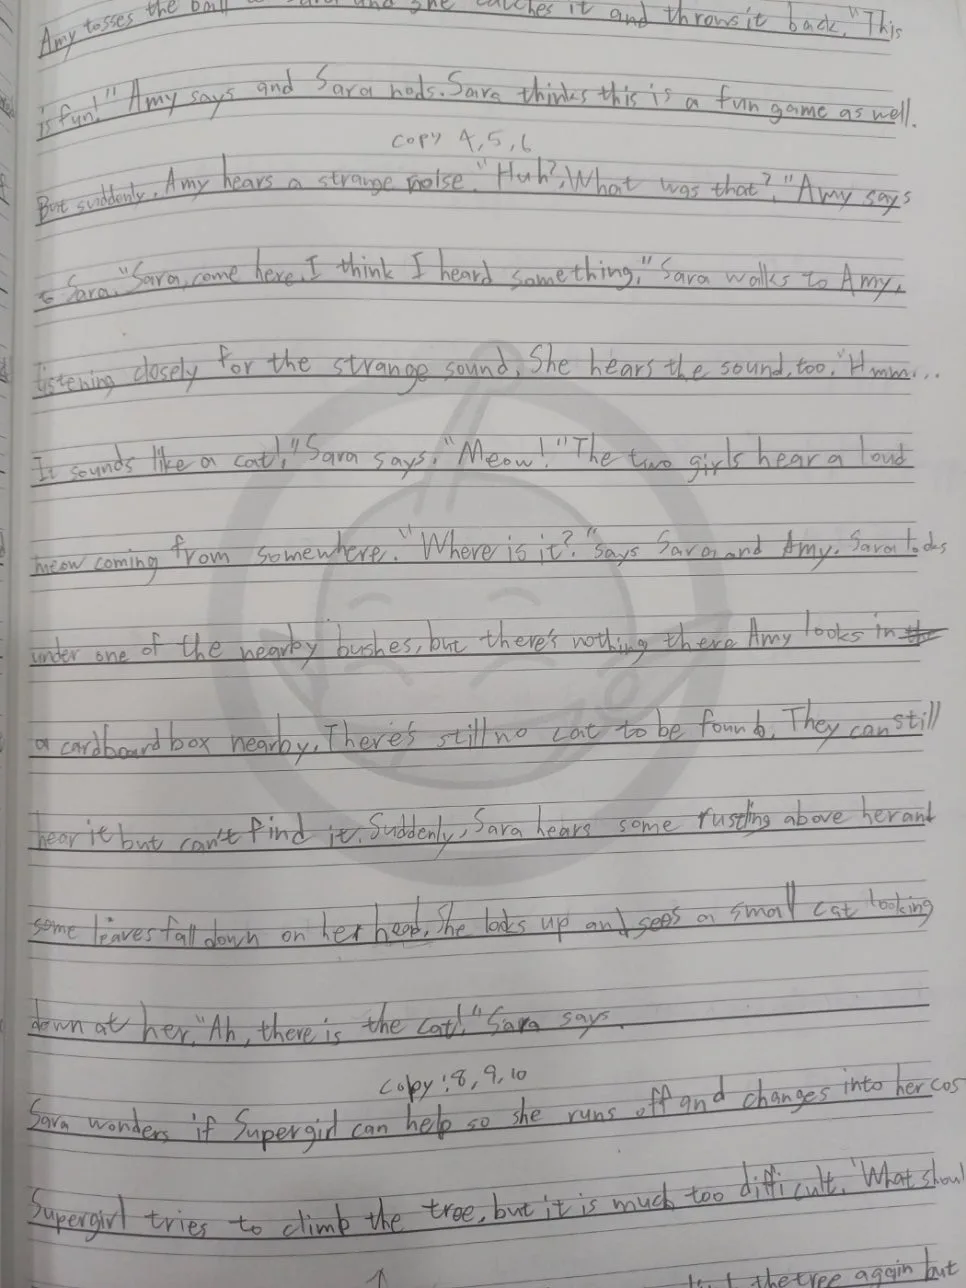 Amy tosses the ball and she catches it and throws it back. "This
is fun!" Amy says and Sara nods. Sara thinks this is a fun game as well.
copy 4,5,6
But suddenly, Amy hears a strange noise. "Huh?, What was that?," Amy says
to Sara. "Sara, come here. I think I heard something," Sara walks to Amy,
listening closely for the strange sound. She hears the sound, too. "Hmm...
It sounds like a cat!," Sara says. "Meow!" The two girls hear a loud
meow coming from somewhere. "Where is it?" says Sara and Amy. Sara looks
under one of the nearby bushes, but there's nothing there Amy looks in the
a cardboard box nearby. There's still no cat to be found. They can still
hear it but can't find it. Suddenly, Sara hears some rustling above her and
some leaves fall down on her head. She looks up and sees a small cat looking
down at her. "Ah, there is the cat!," Sara says.
copy: 8,9,10
Sara wonders if Supergirl can help so she runs off and changes into her cos
Supergirl tries to climb the tree, but it is much too difficult. "What shoul
the tree again but